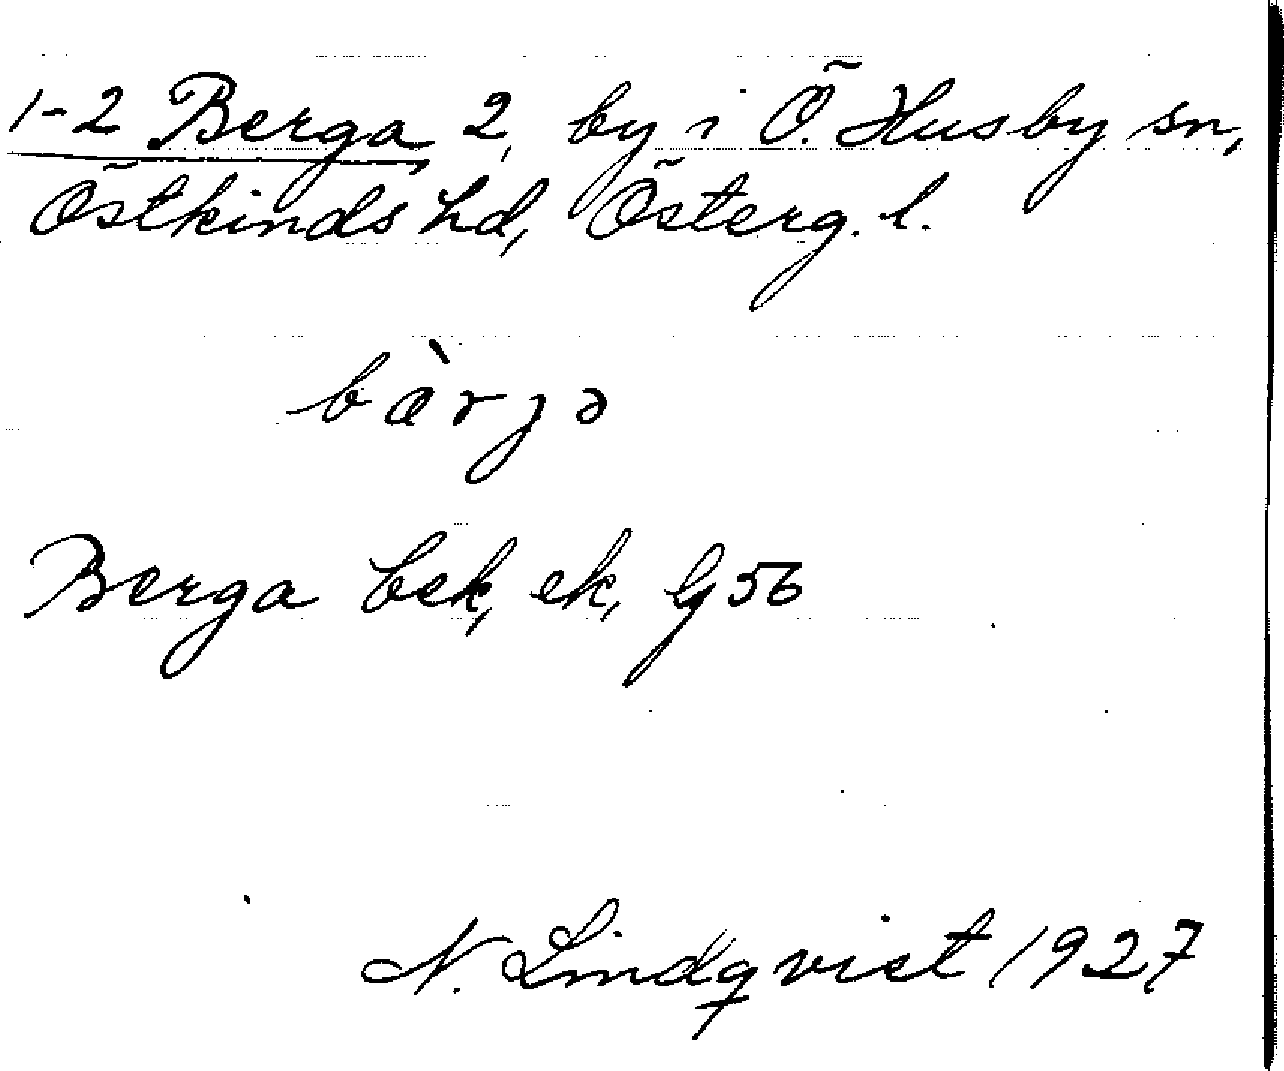 1-2 Berga, 2, by i Ö. Husby sn,
Östkinds hd, Österg. l.
bàrjə
Berga bek, ek, G 56
N. Lindqvist 1927